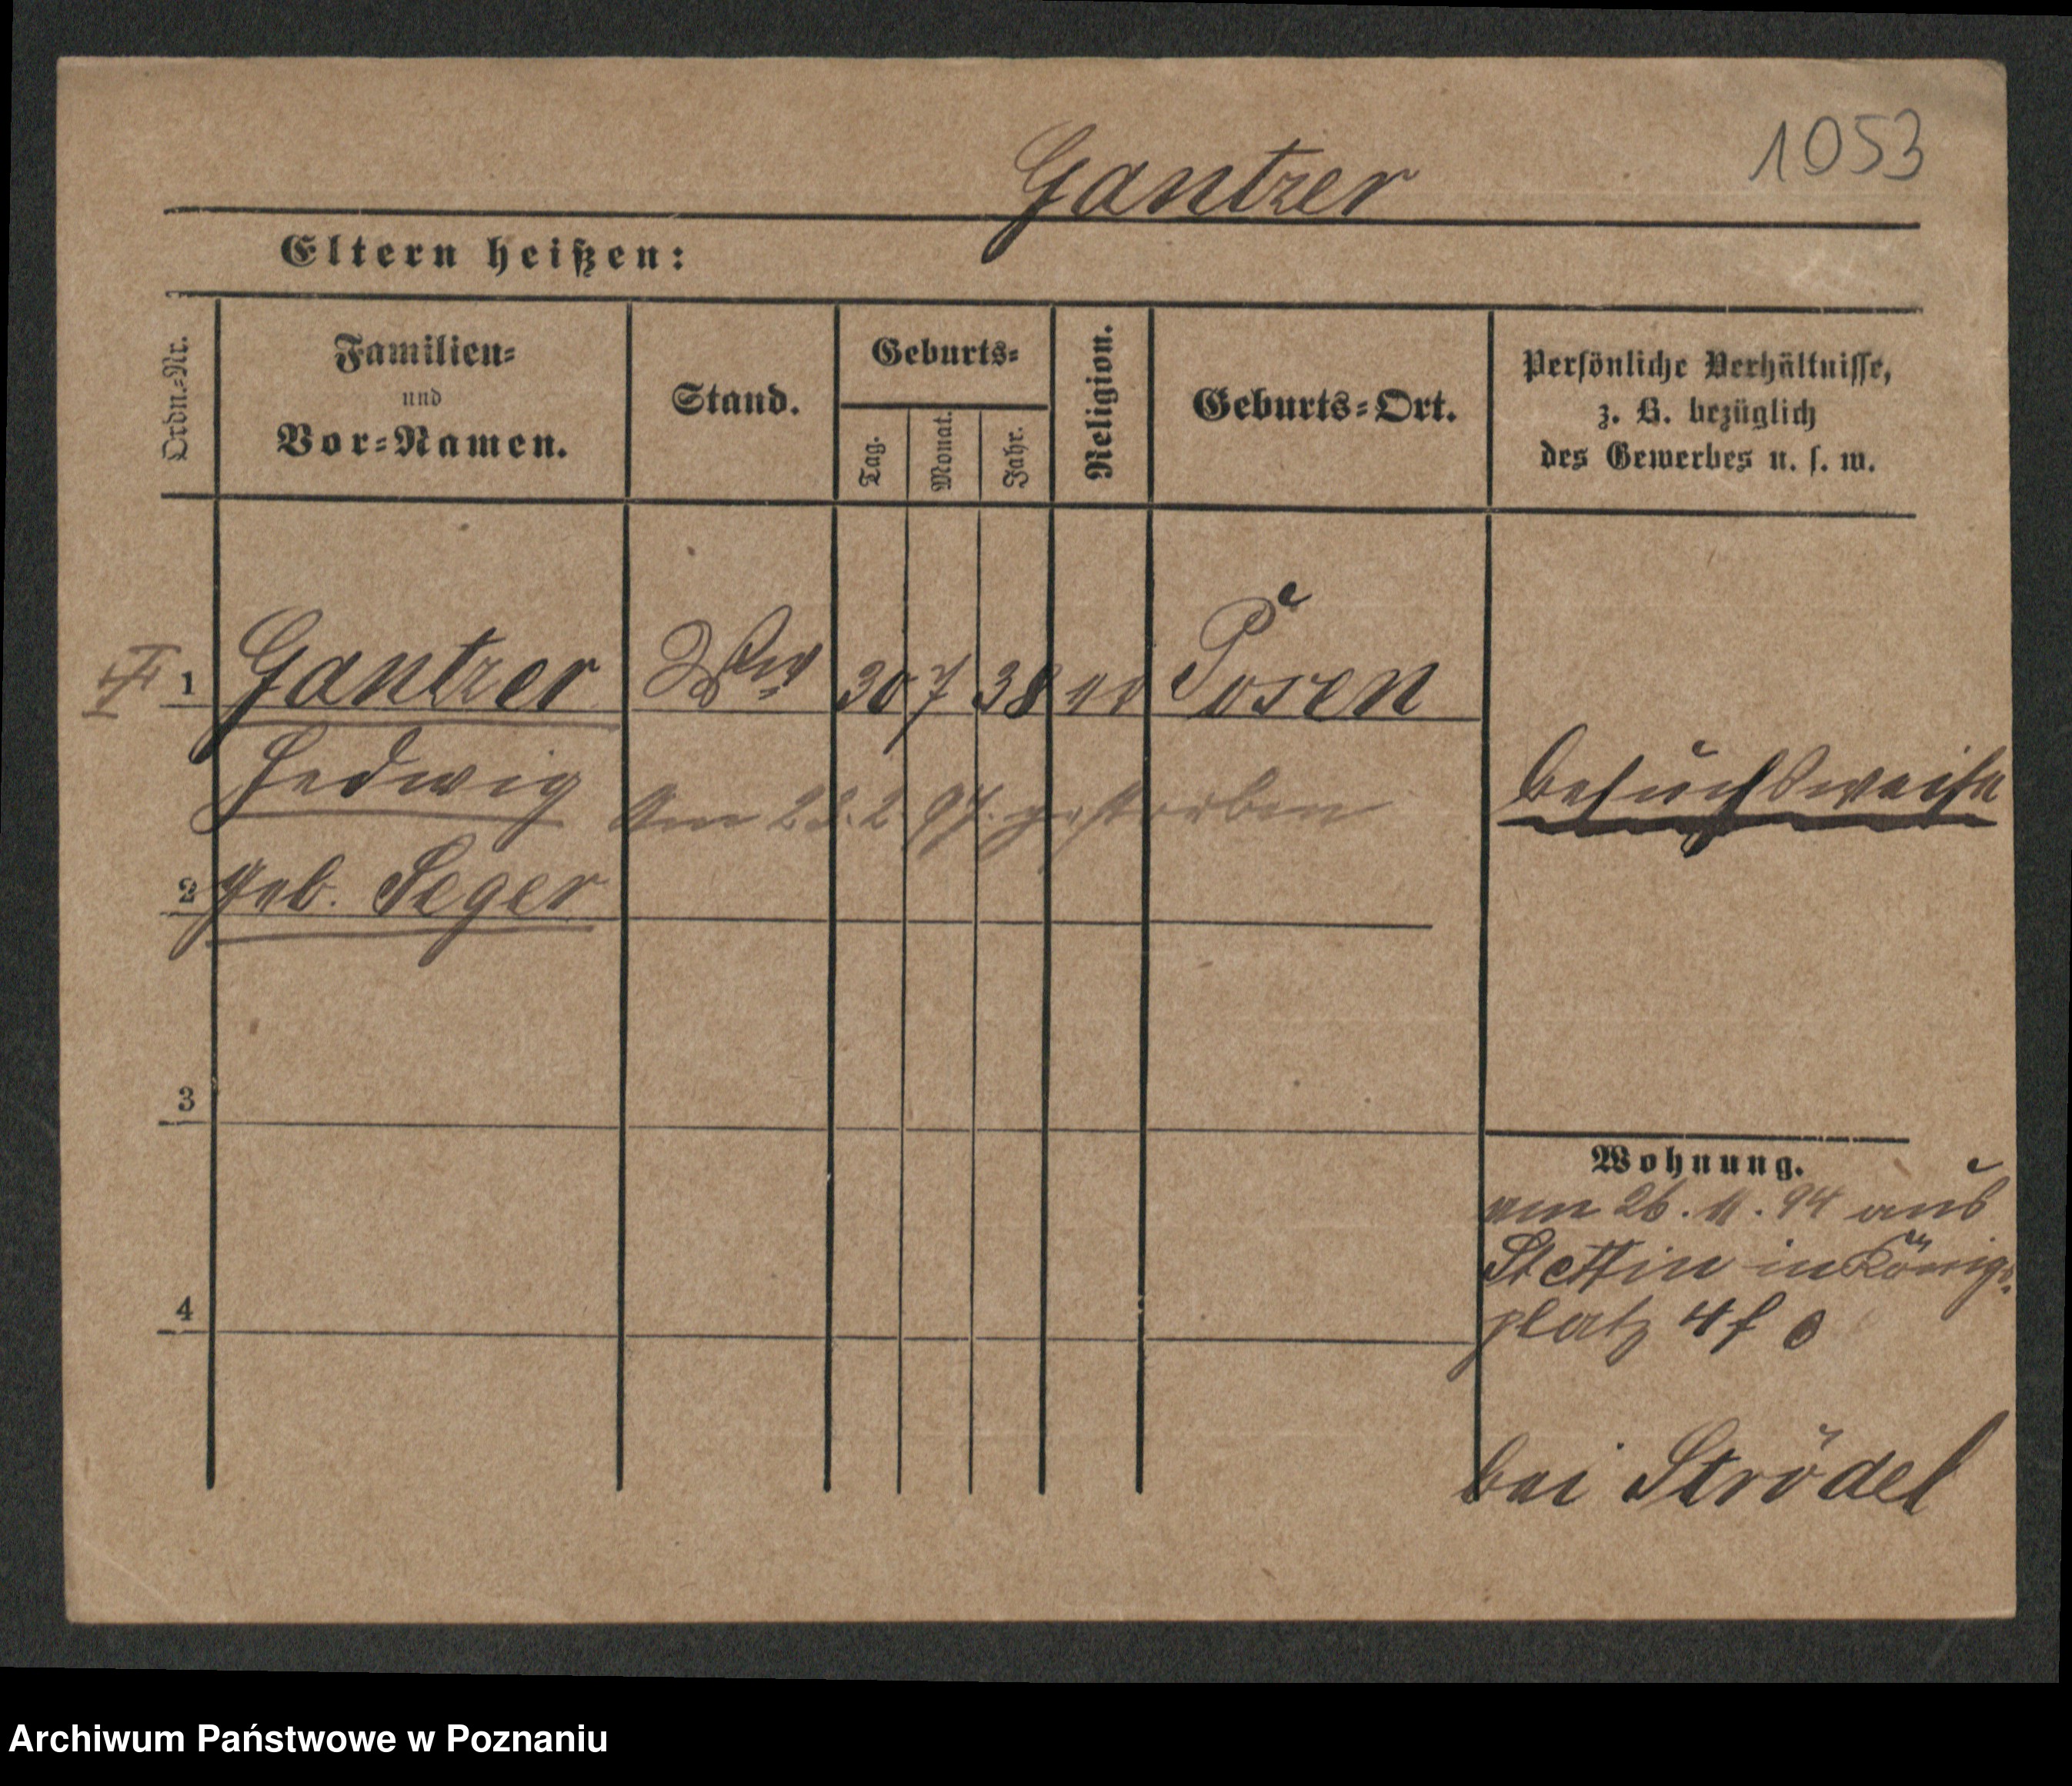 1053
Gantzer
Eltern heißen:
Ordn.-Nr.
Familien-
und
Vor-Namen.
Stand.
Geburts-
Tag.
Monat.
Jahr.
Religion.
Geburts-Ort.
Persönliche Verhältnisse,
z. B. bezüglich
des Gewerbes u. s. w.
1 Gantzer Ww 30 7 38 Posen
Hedwig
besuchsweise
am 23.2 97. gestorben
2 geb. Seger
3
Wohnung.
am 26.11.94 aus
Stettin in Königs-
4
platz 4 f
bei Strödel
Archiwum Państwowe w Poznaniu